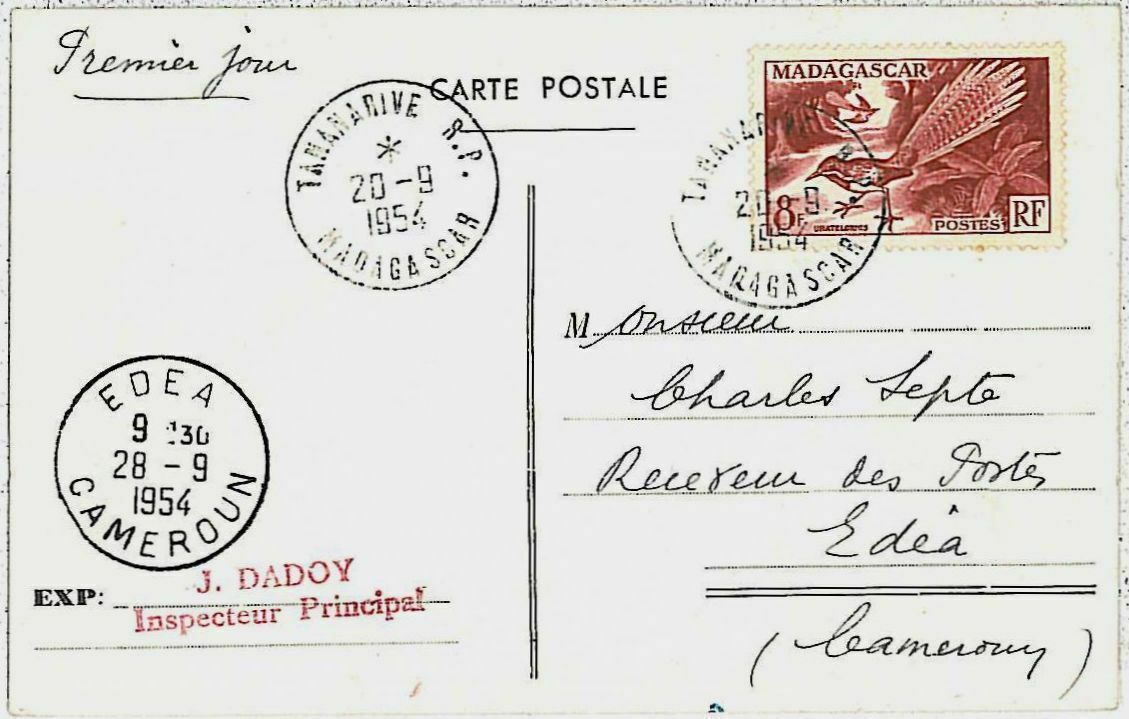 Premier jour
CARTE POSTALE
TANANARIVE R.P.
*
20-9
1954
MADAGASCAR
MADAGASCAR
8F
URATELORNIS
POSTES
RF
TANANARIVE R.P.
20-9
1954
MADAGASCAR
Monsieur
Charles Septe
Receveur des Postes
Edéa
(Cameroun)
EDEA
9 :30
28-9
1954
CAMEROUN
EXP:
J. DADOY
Inspecteur Principal